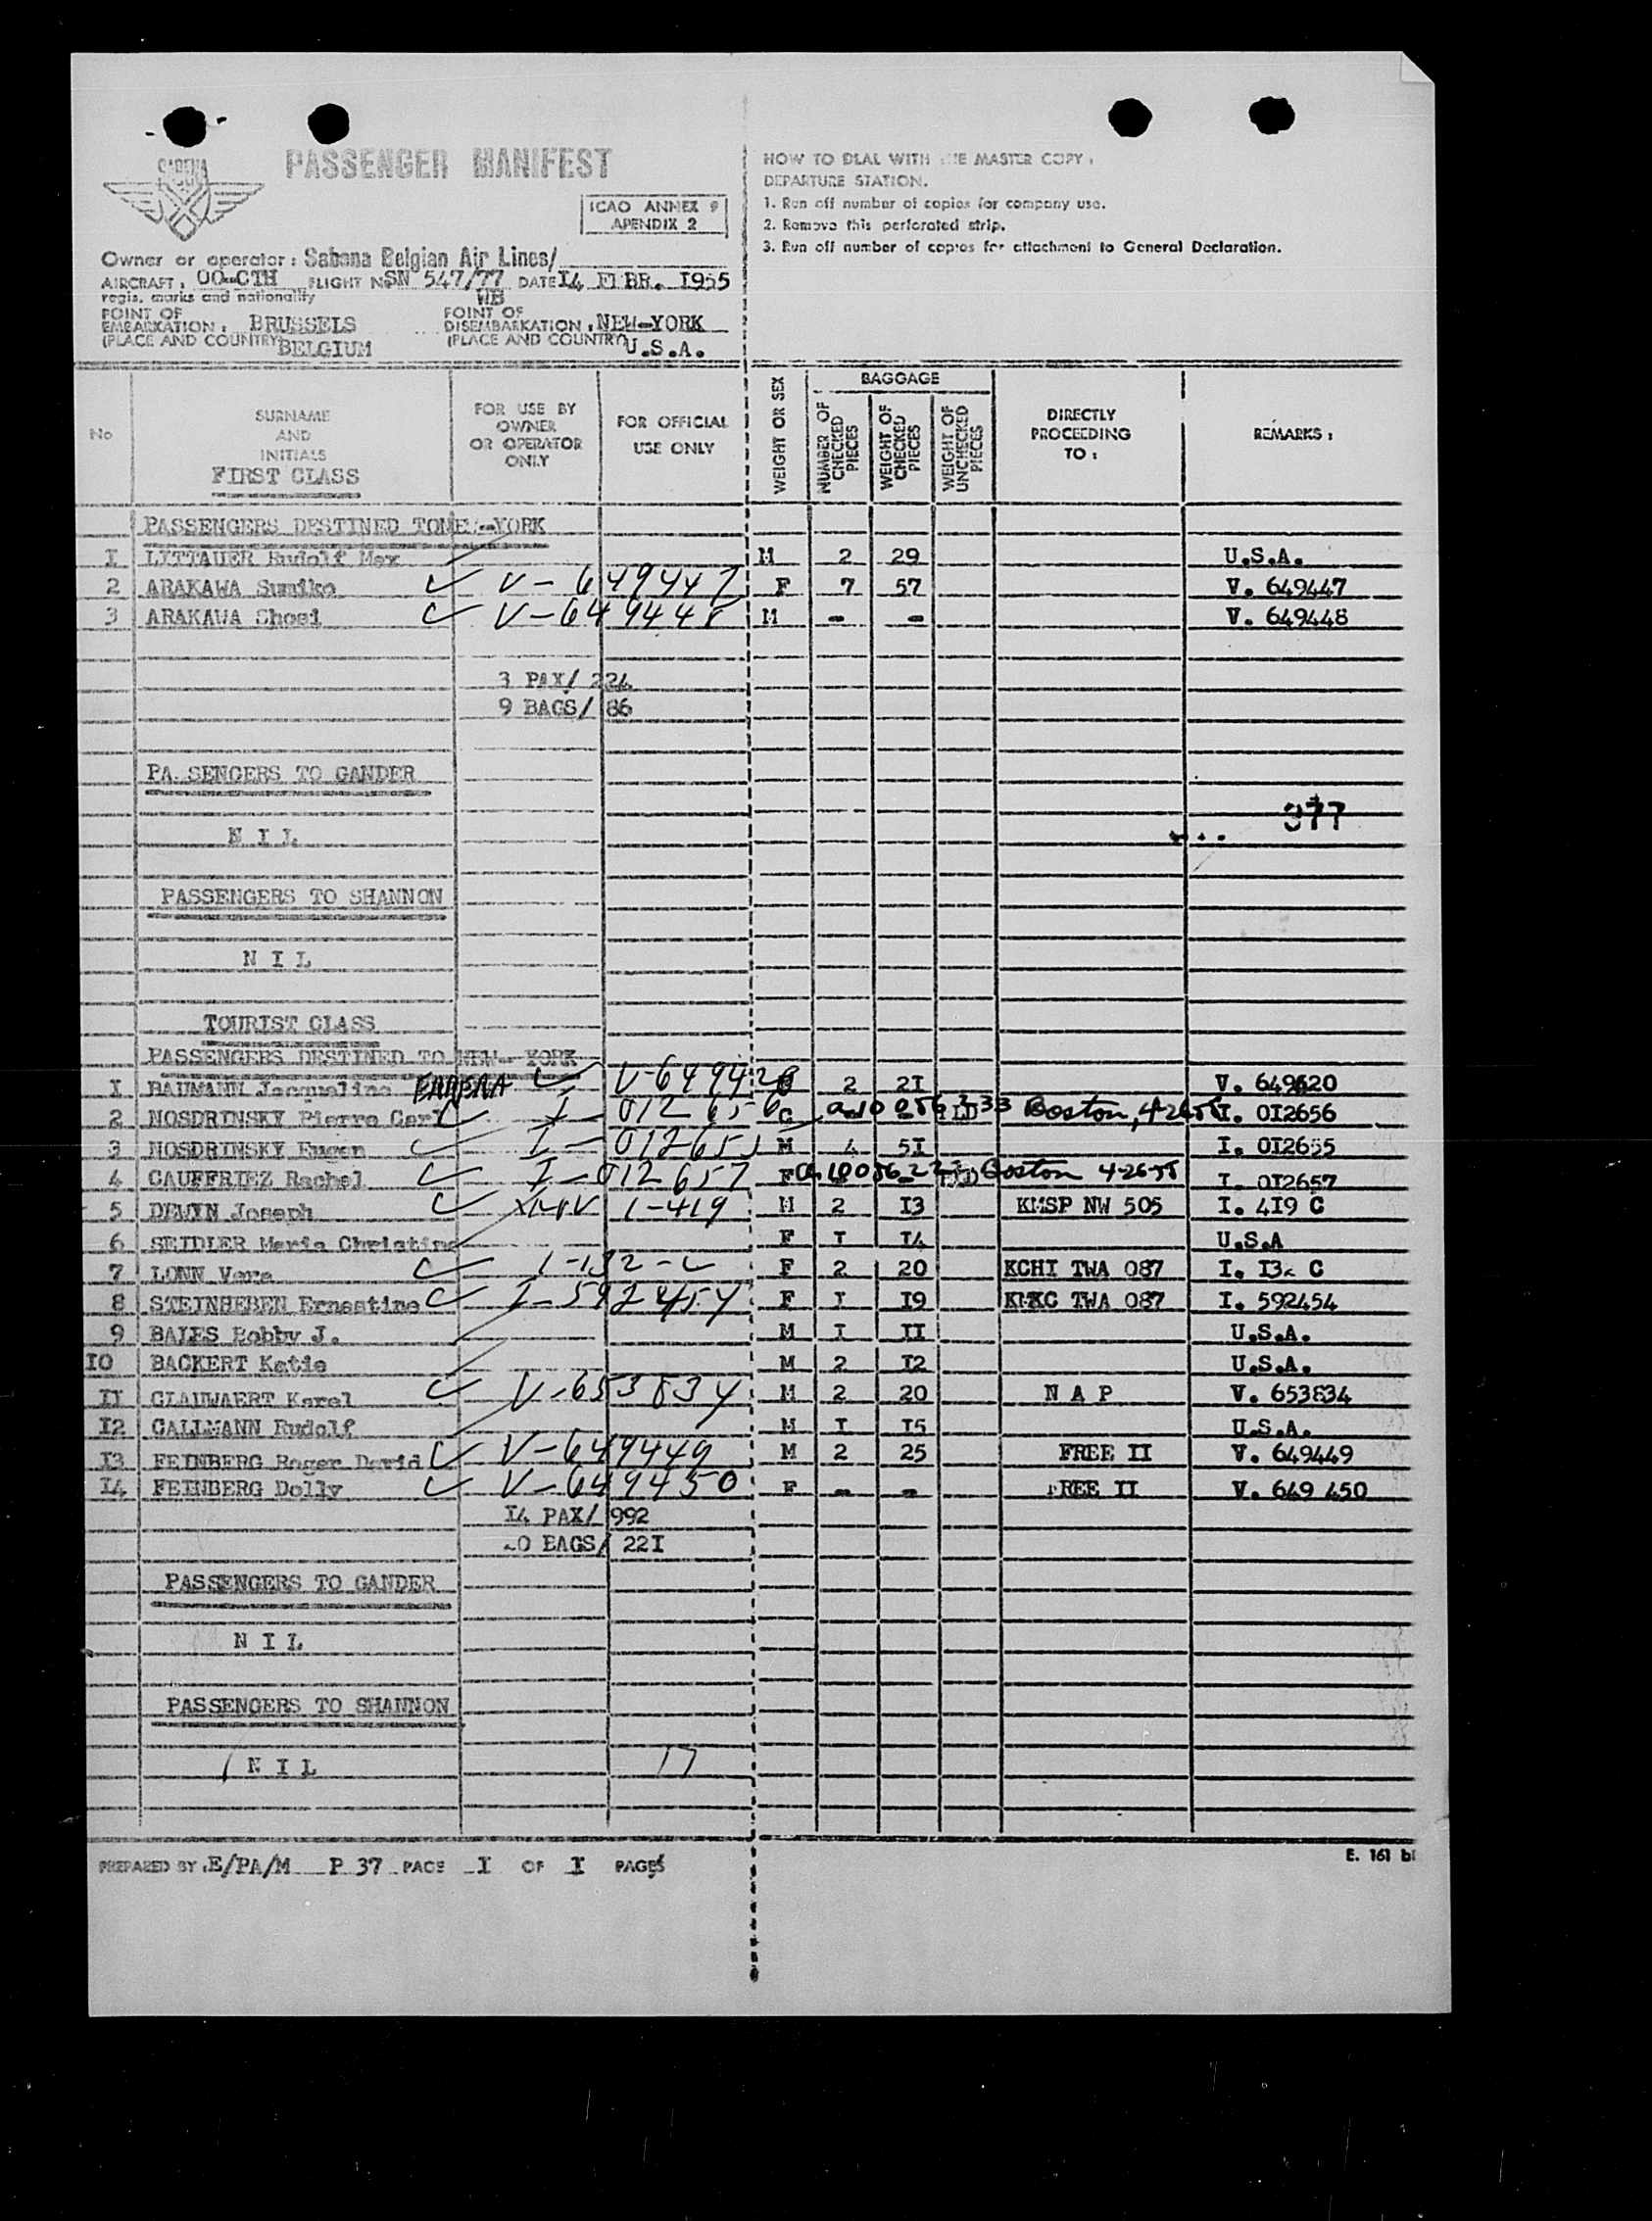 SABENA
PASSENGER MANIFEST
ICAO ANNEX 9
APENDIX 2
Owner or operator : Sabena Belgian Air Lines/
AIRCRAFT : OO-CTH FLIGHT No SN 547/77 DATE I4 FEBR. I955
regis. marks and nationality WB
POINT OF EMBARKATION : BRUSSELS POINT OF DISEMBARKATION : NEW-YORK
(PLACE AND COUNTRY) BELGIUM (PLACE AND COUNTRY) U.S.A.
HOW TO DEAL WITH THE MASTER COPY :
DEPARTURE STATION.
1. Run off number of copies for company use.
2. Remove this perforated strip.
3. Run off number of copies for attachment to General Declaration.
No SURNAME AND INITIALS FOR USE BY OWNER OR OPERATOR ONLY FOR OFFICIAL USE ONLY WEIGHT OR SEX BAGGAGE NUMBER OF CHECKED PIECES WEIGHT OF CHECKED PIECES WEIGHT OF UNCHECKED PIECES DIRECTLY PROCEEDING TO : REMARKS :
FIRST CLASS
PASSENGERS DESTINED TO NEW-YORK
I LITTAUER Rudolf Max M 2 29 U.S.A.
2 ARAKAWA Sumiko V-649447 F 7 57 V. 649447
3 ARAKAWA Shosi V-649448 M - - V. 649448
3 PAX/ 224
9 BAGS/ 86
PA SENGERS TO GANDER
377
N I L
PASSENGERS TO SHANNON
N I L
TOURIST CLASS
PASSENGERS DESTINED TO NEW-YORK
I BAUMANN Jacqueline V-649420 2 2I V. 649420
2 NOSDRINSKY Pierre Carl I-012656 C Boston, 4-26-55 I. 0I2656
3 NOSDRINSKY Eugen I-012655 M 4 5I I. 0I2655
4 CAUFFRIEZ Rachel I-012657 F Boston 4-26-55 I. 0I2657
5 DEWYN Joseph 1-419 M 2 I3 KMSP NW 505 I. 4I9 C
6 SEIDLER Maria Christine F I I4 U.S.A
7 LONN Vera 1-132-C F 2 20 KCHI TWA 087 I. I32 C
8 STEINHEBEN Ernestine I-592454 F I I9 KMKC TWA 087 I. 592454
9 BALES Bobby J. M I II U.S.A.
IO BACKERT Katie M 2 I2 U.S.A.
II CLAUWAERT Karel V-653834 M 2 20 N A P V. 653834
I2 CALLMANN Rudolf M I I5 U.S.A.
I3 FEINBERG Roger David V-649449 M 2 25 FREE II V. 649449
I4 FEINBERG Dolly V-649450 F - - FREE II V. 649 450
I4 PAX/ 992
20 BAGS/ 22I
PASSENGERS TO GANDER
N I L
PASSENGERS TO SHANNON
N I L 17
PREPARED BY : E/PA/M P 37 PAGE I OF I PAGES
E. 161 bi